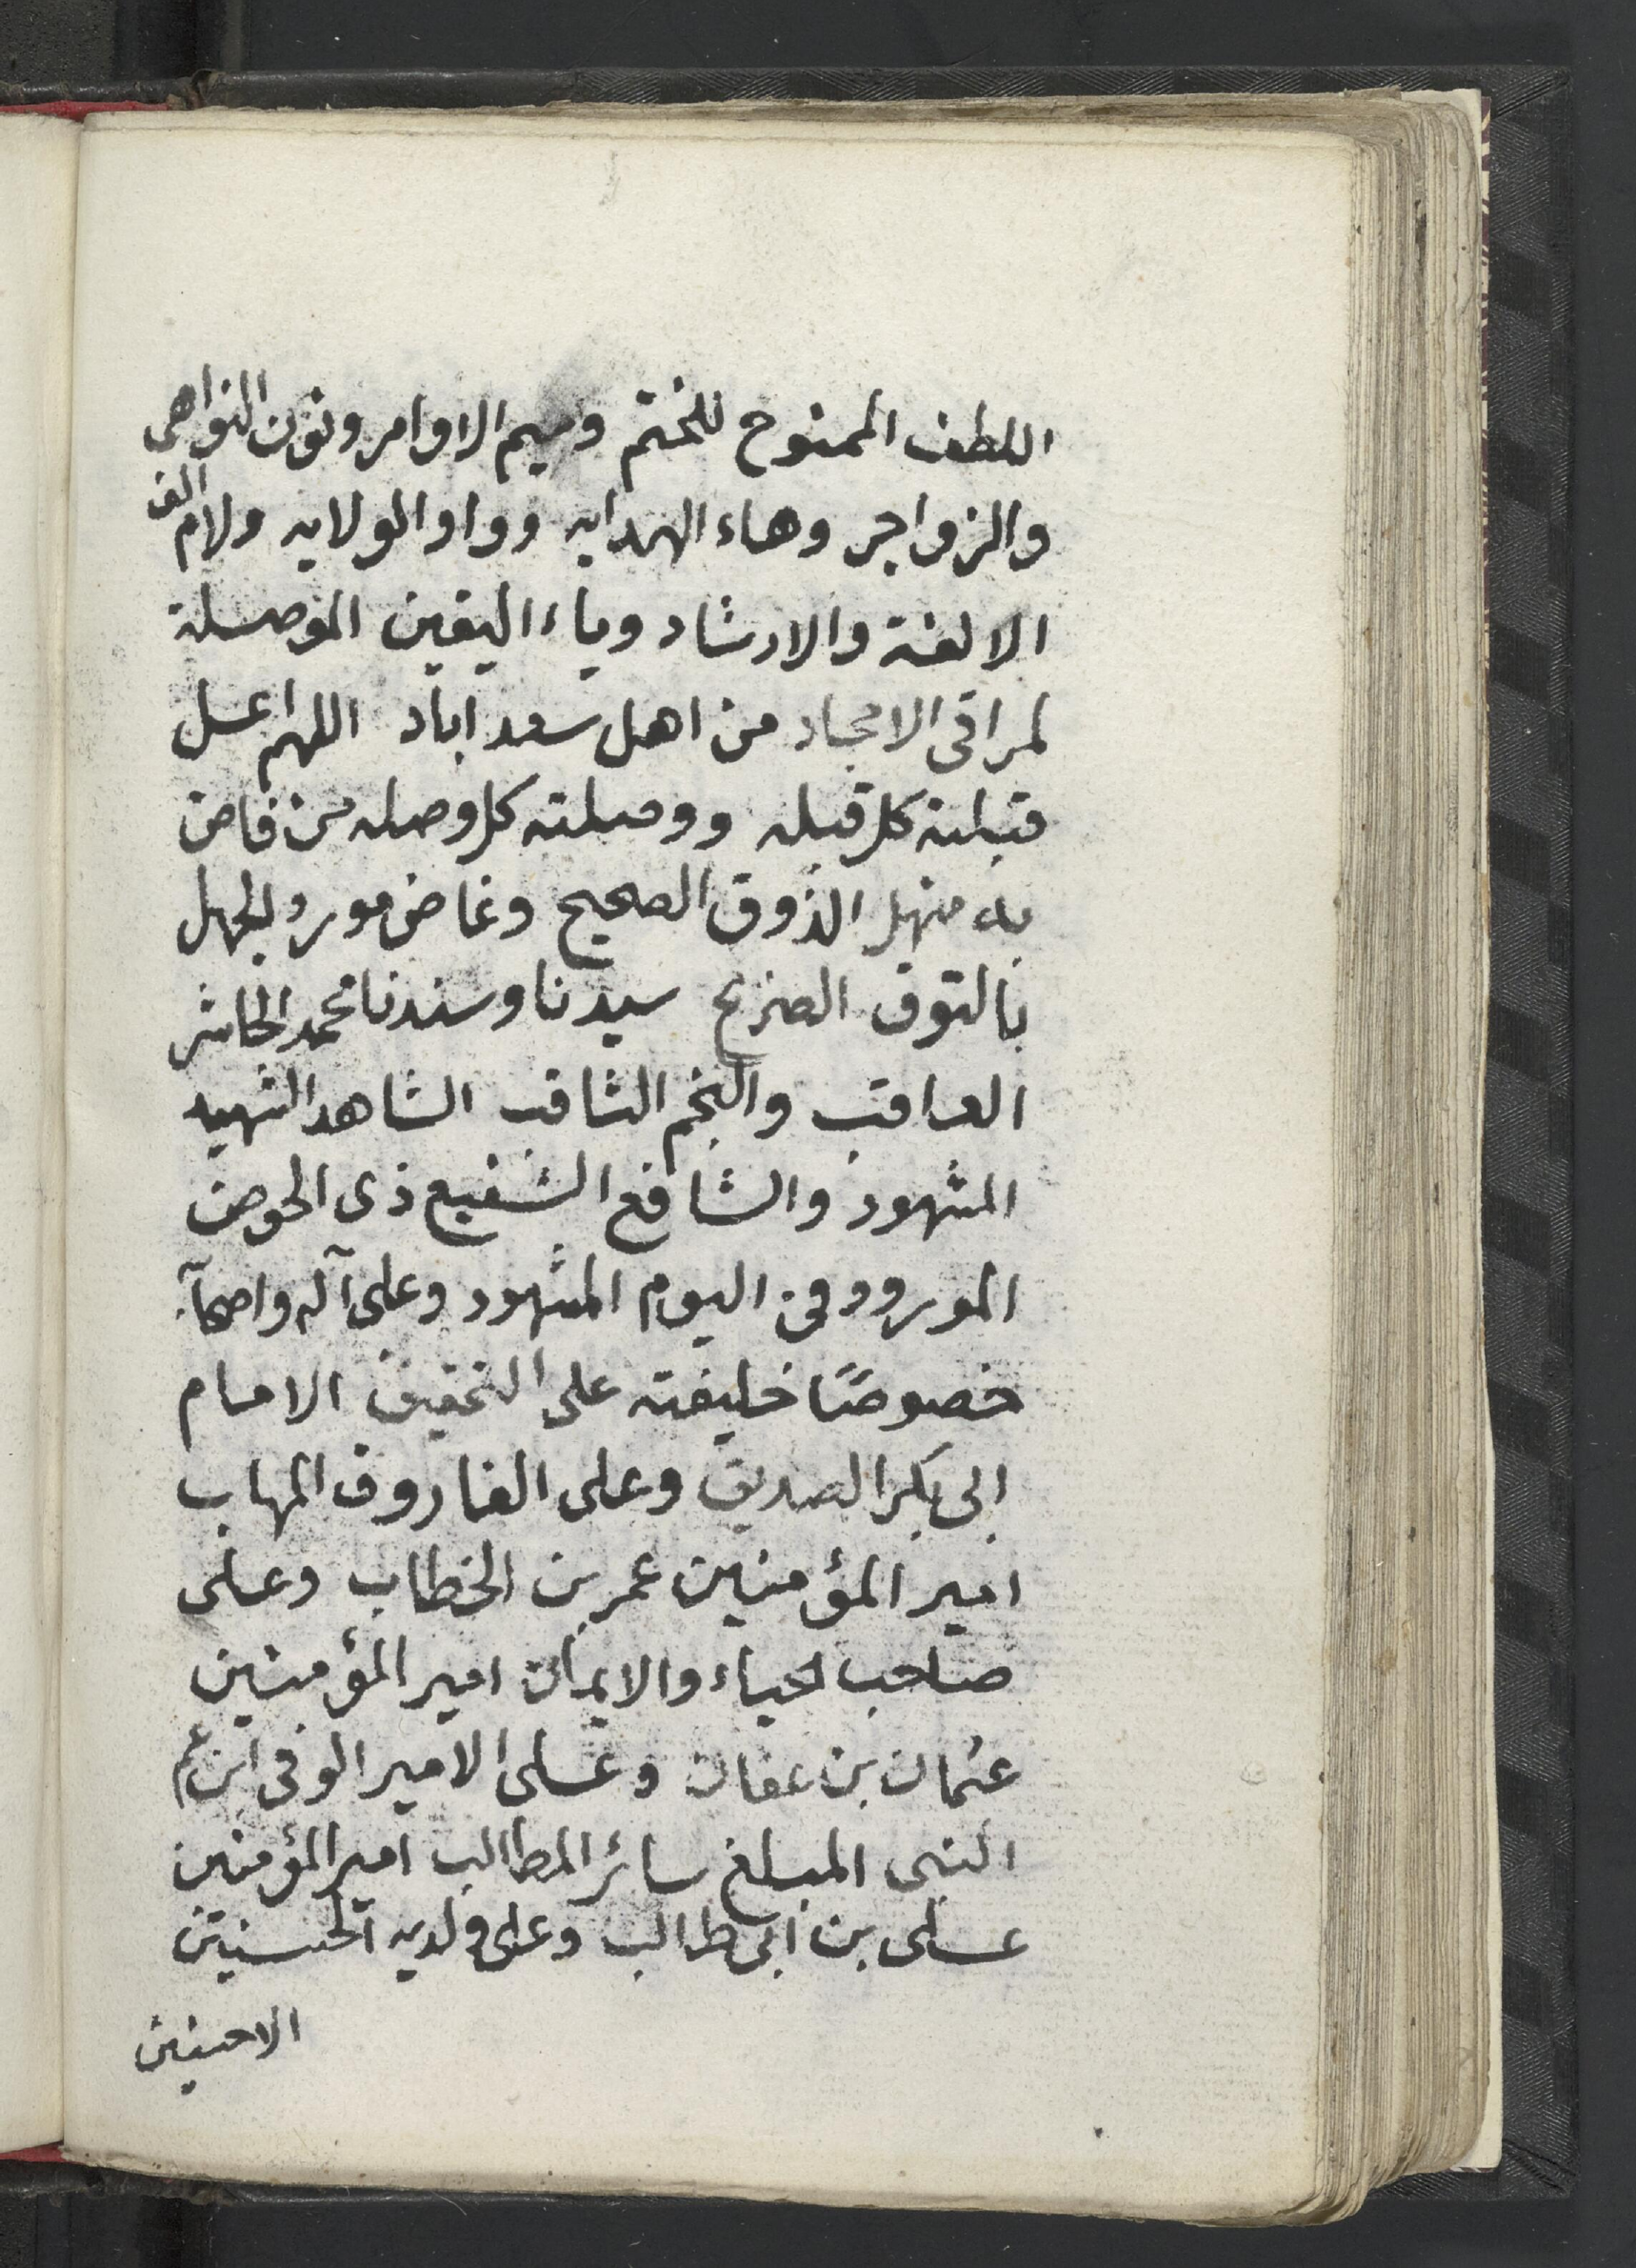 اللطف الممنوح للختم وميم الاوامر ونون النواهى
والزواجر وهاء الهدايه وواو الولايه ولام الف
الالفة والارشاد وياء اليقين الموصلة
لمراقى الامجاد من اهل سعد اباد اللهم اعل
قبلته كل قبله ووصلته كل وصله من فاض
به منهل الذوق الصحيح وغاض مورد الجهل
بالتوق الصريح سيدنا وسندنا محمد الحاشر
العاقب والنجم الثاقب الشاهد الشهيد
المشهود والشافع الشفيع ذى الحوض
المورود فى اليوم المشهود وعلى آله واصحآبه
خصوصًا خليفته على التحقيق الامام
ابى بكر الصديق وعلى الفاروق المهاب
امير المؤمنين عمر بن الخطاب وعلى
صاحب الحياء والايمان امير المؤمنين
عثمان بن عفان وعلى الامير الوفى ابن عم
النبى المبلغ سائر المطالب امير المؤمنين
على بن ابى طالب وعلى ولديه الحسنيين
الاحسنين